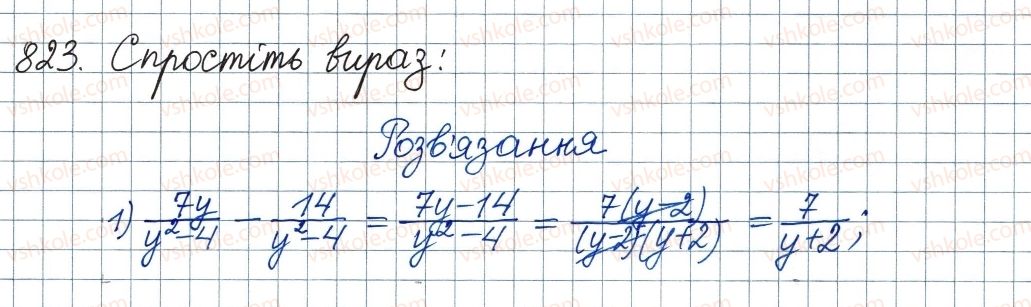 823. Спростіть вираз:
Розв'язання
1) 7y/(y²-4) - 14/(y²-4) = (7y-14)/(y²-4) = 7(y-2)/((y-2)(y+2)) = 7/(y+2);